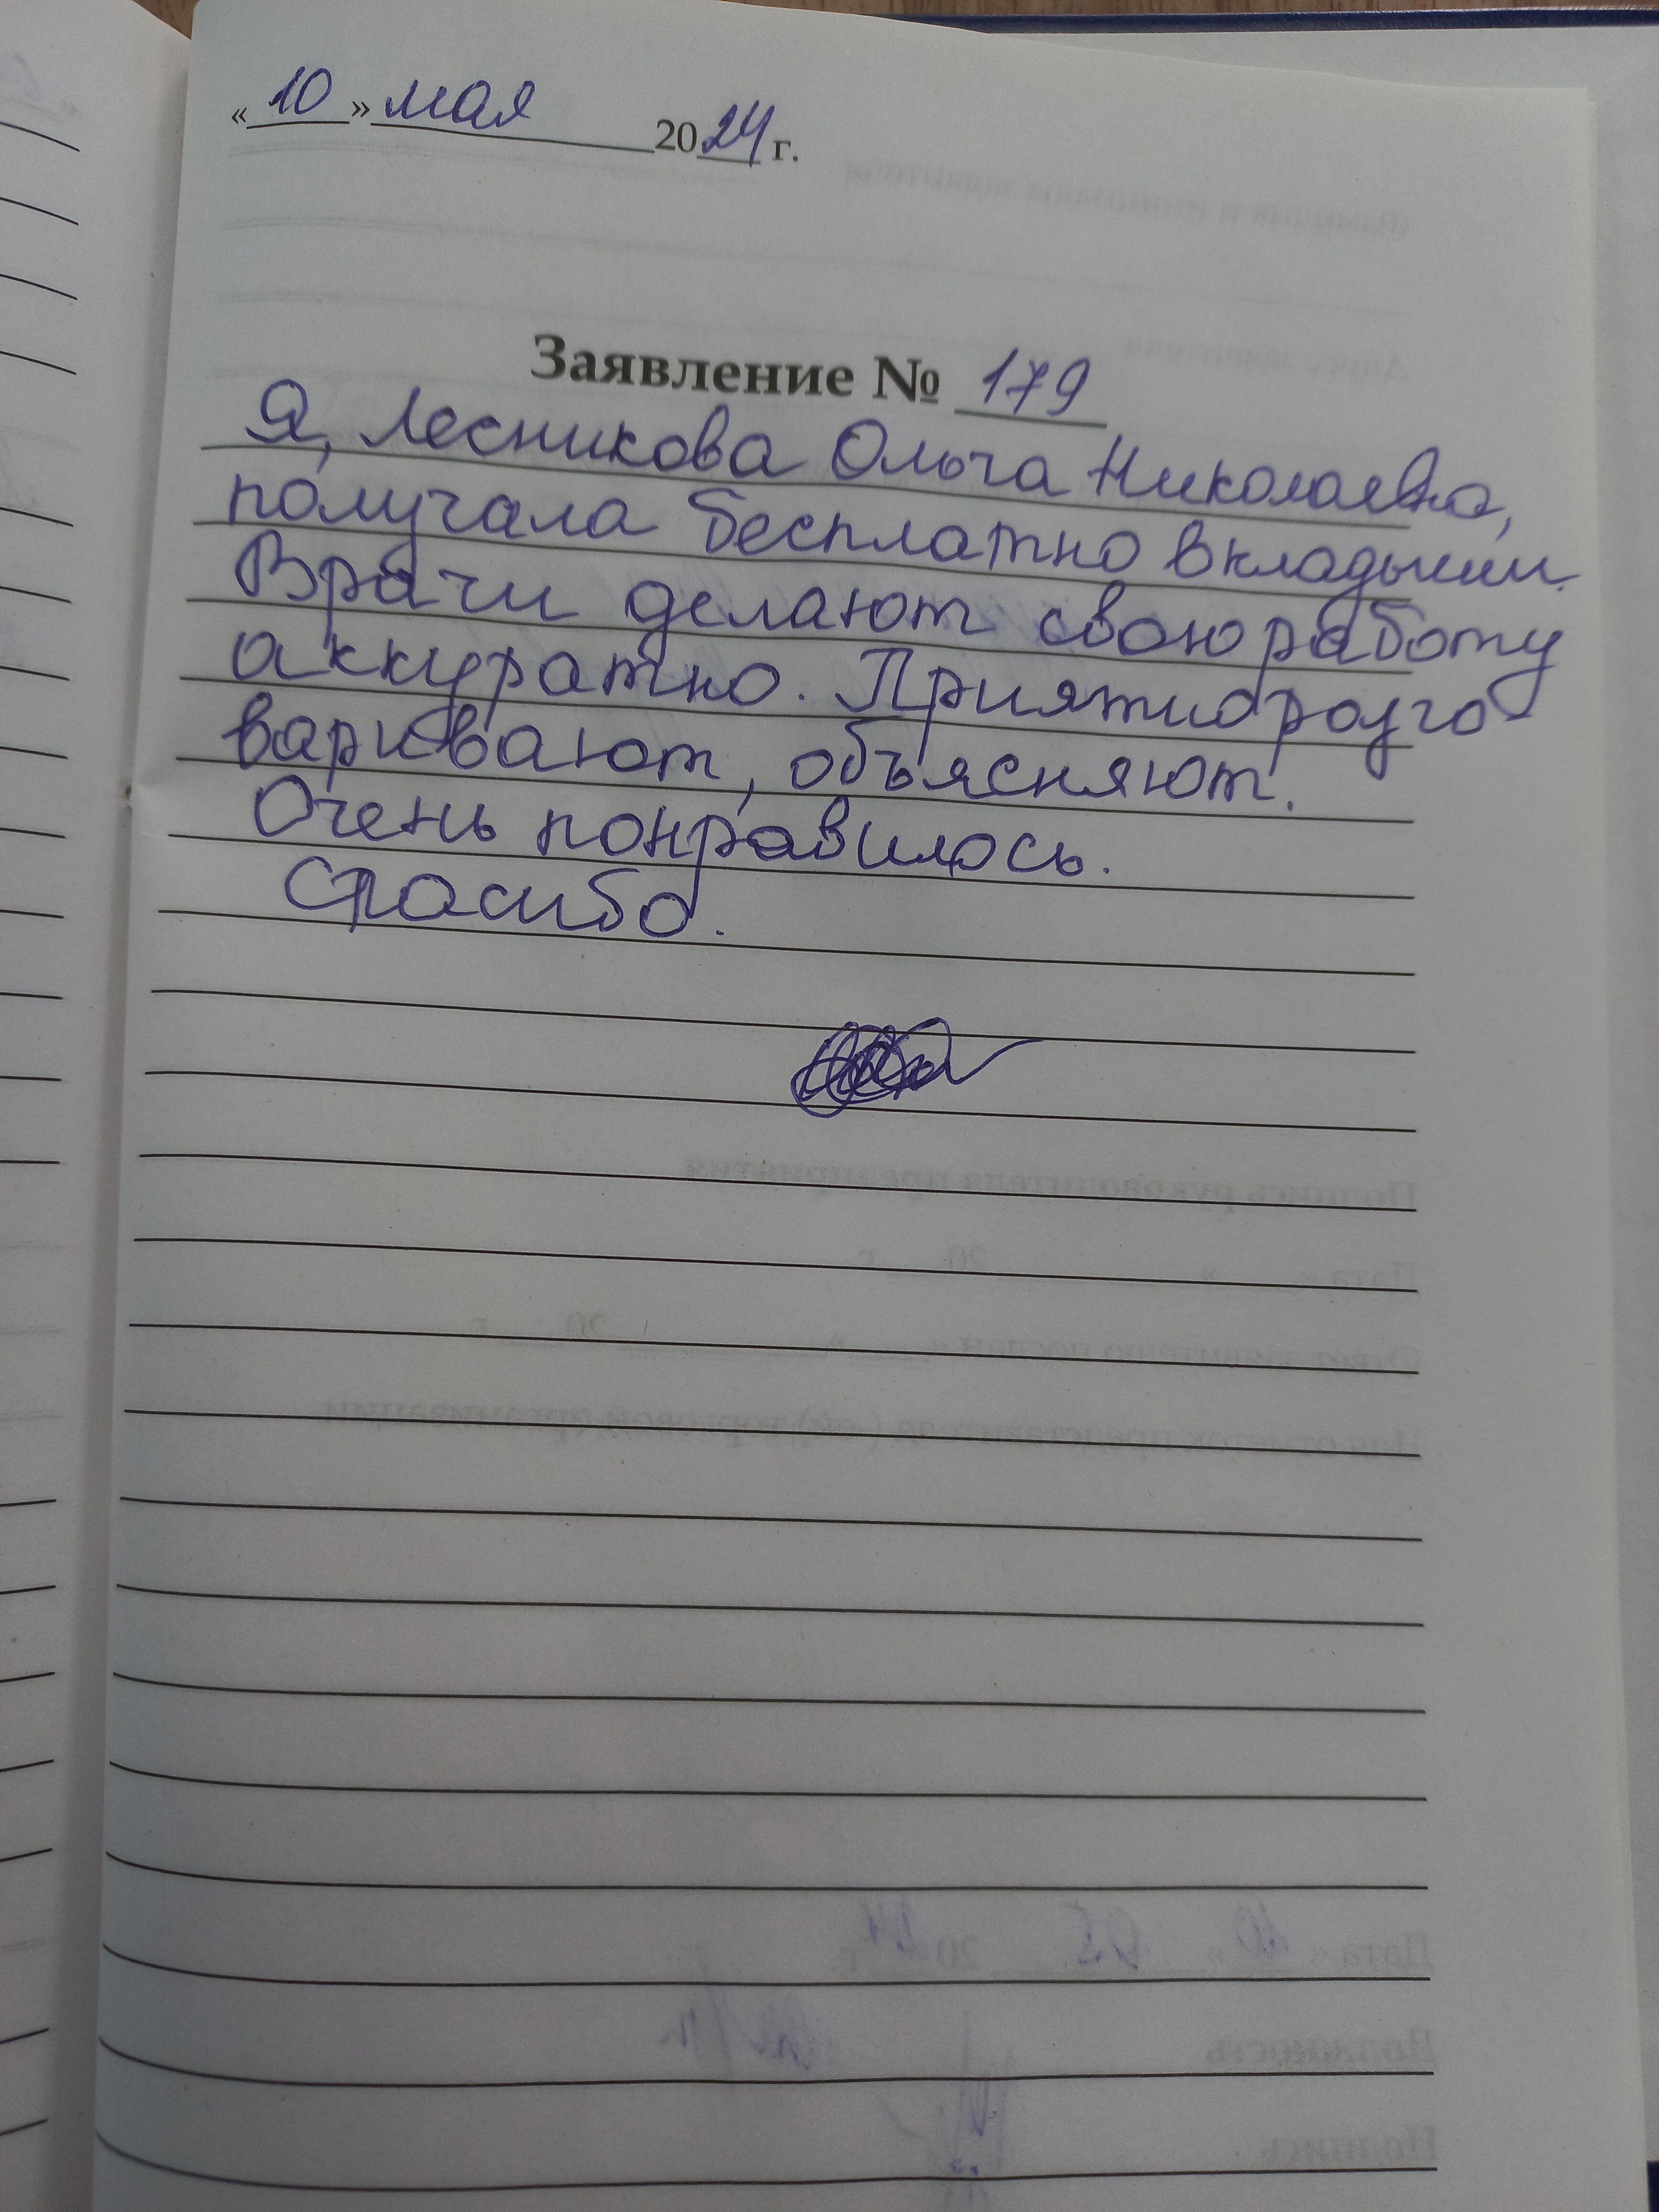 «10» мая 2024 г.
Заявление № 179
Я, Лесникова Ольга Николаевна,
получала бесплатно вкладыши.
Врачи делают свою работу
аккуратно. Приятно разго-
варивают, объясняют.
Очень понравилось.
Спасибо.